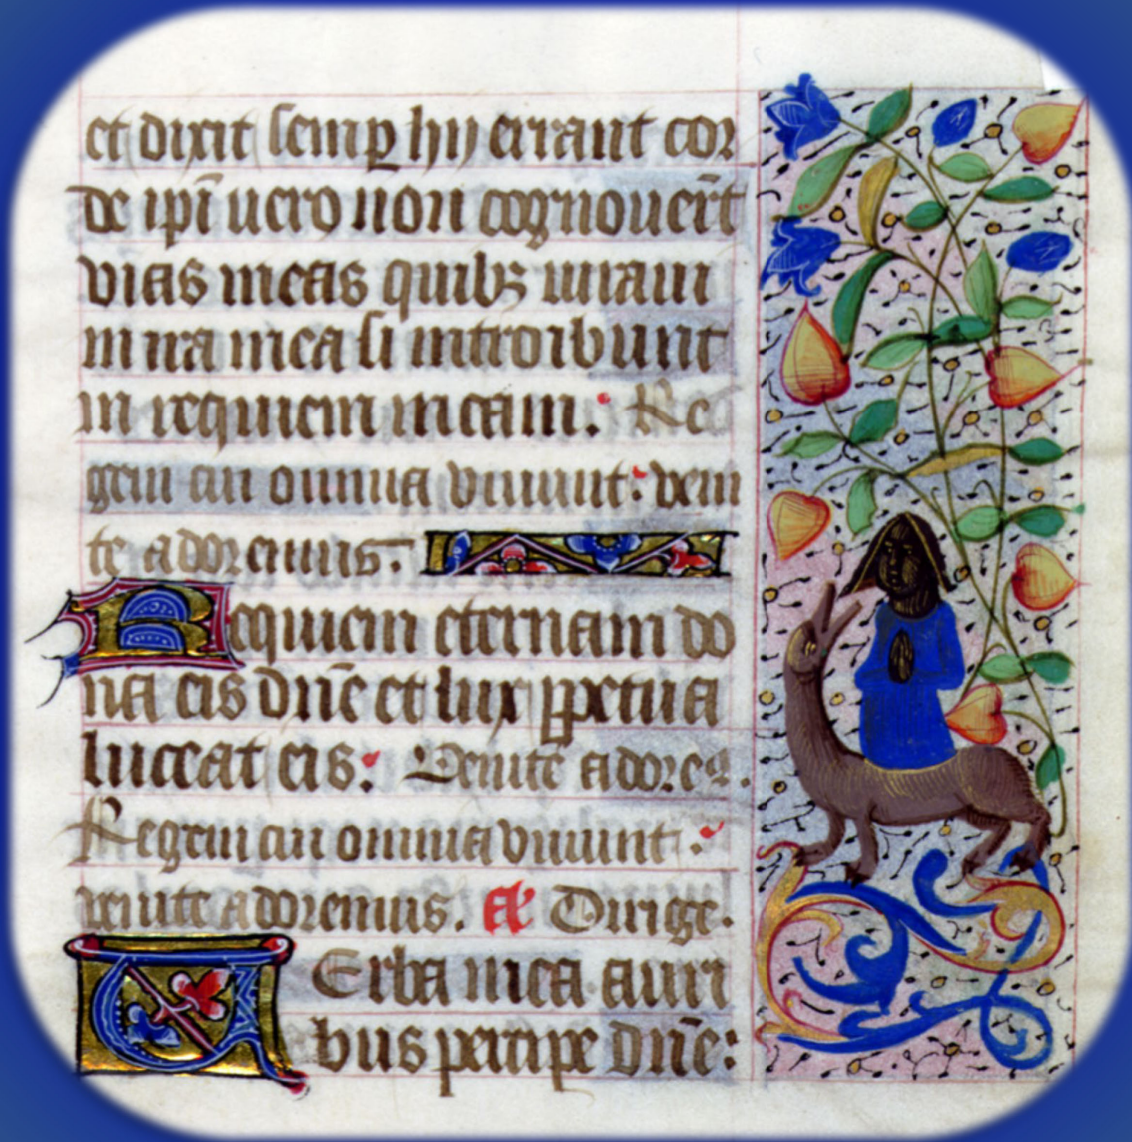 et dixit semꝑ hij errant cor
de ipī uero non cognouert̄
vias meas quibꝫ iuraui
in ira mea si introibunt
in requiem meam. Re
gem cui omnia viuunt: veni
te adoremus.
Requiem eternam do
na eis dn̄e et lux ꝑpetua
luceat eis: Venite adoreꝰ.
Regem cui omnia viuunt.
venite adoremus. A Dirige.
VErba mea auri
bus percipe dn̄e: